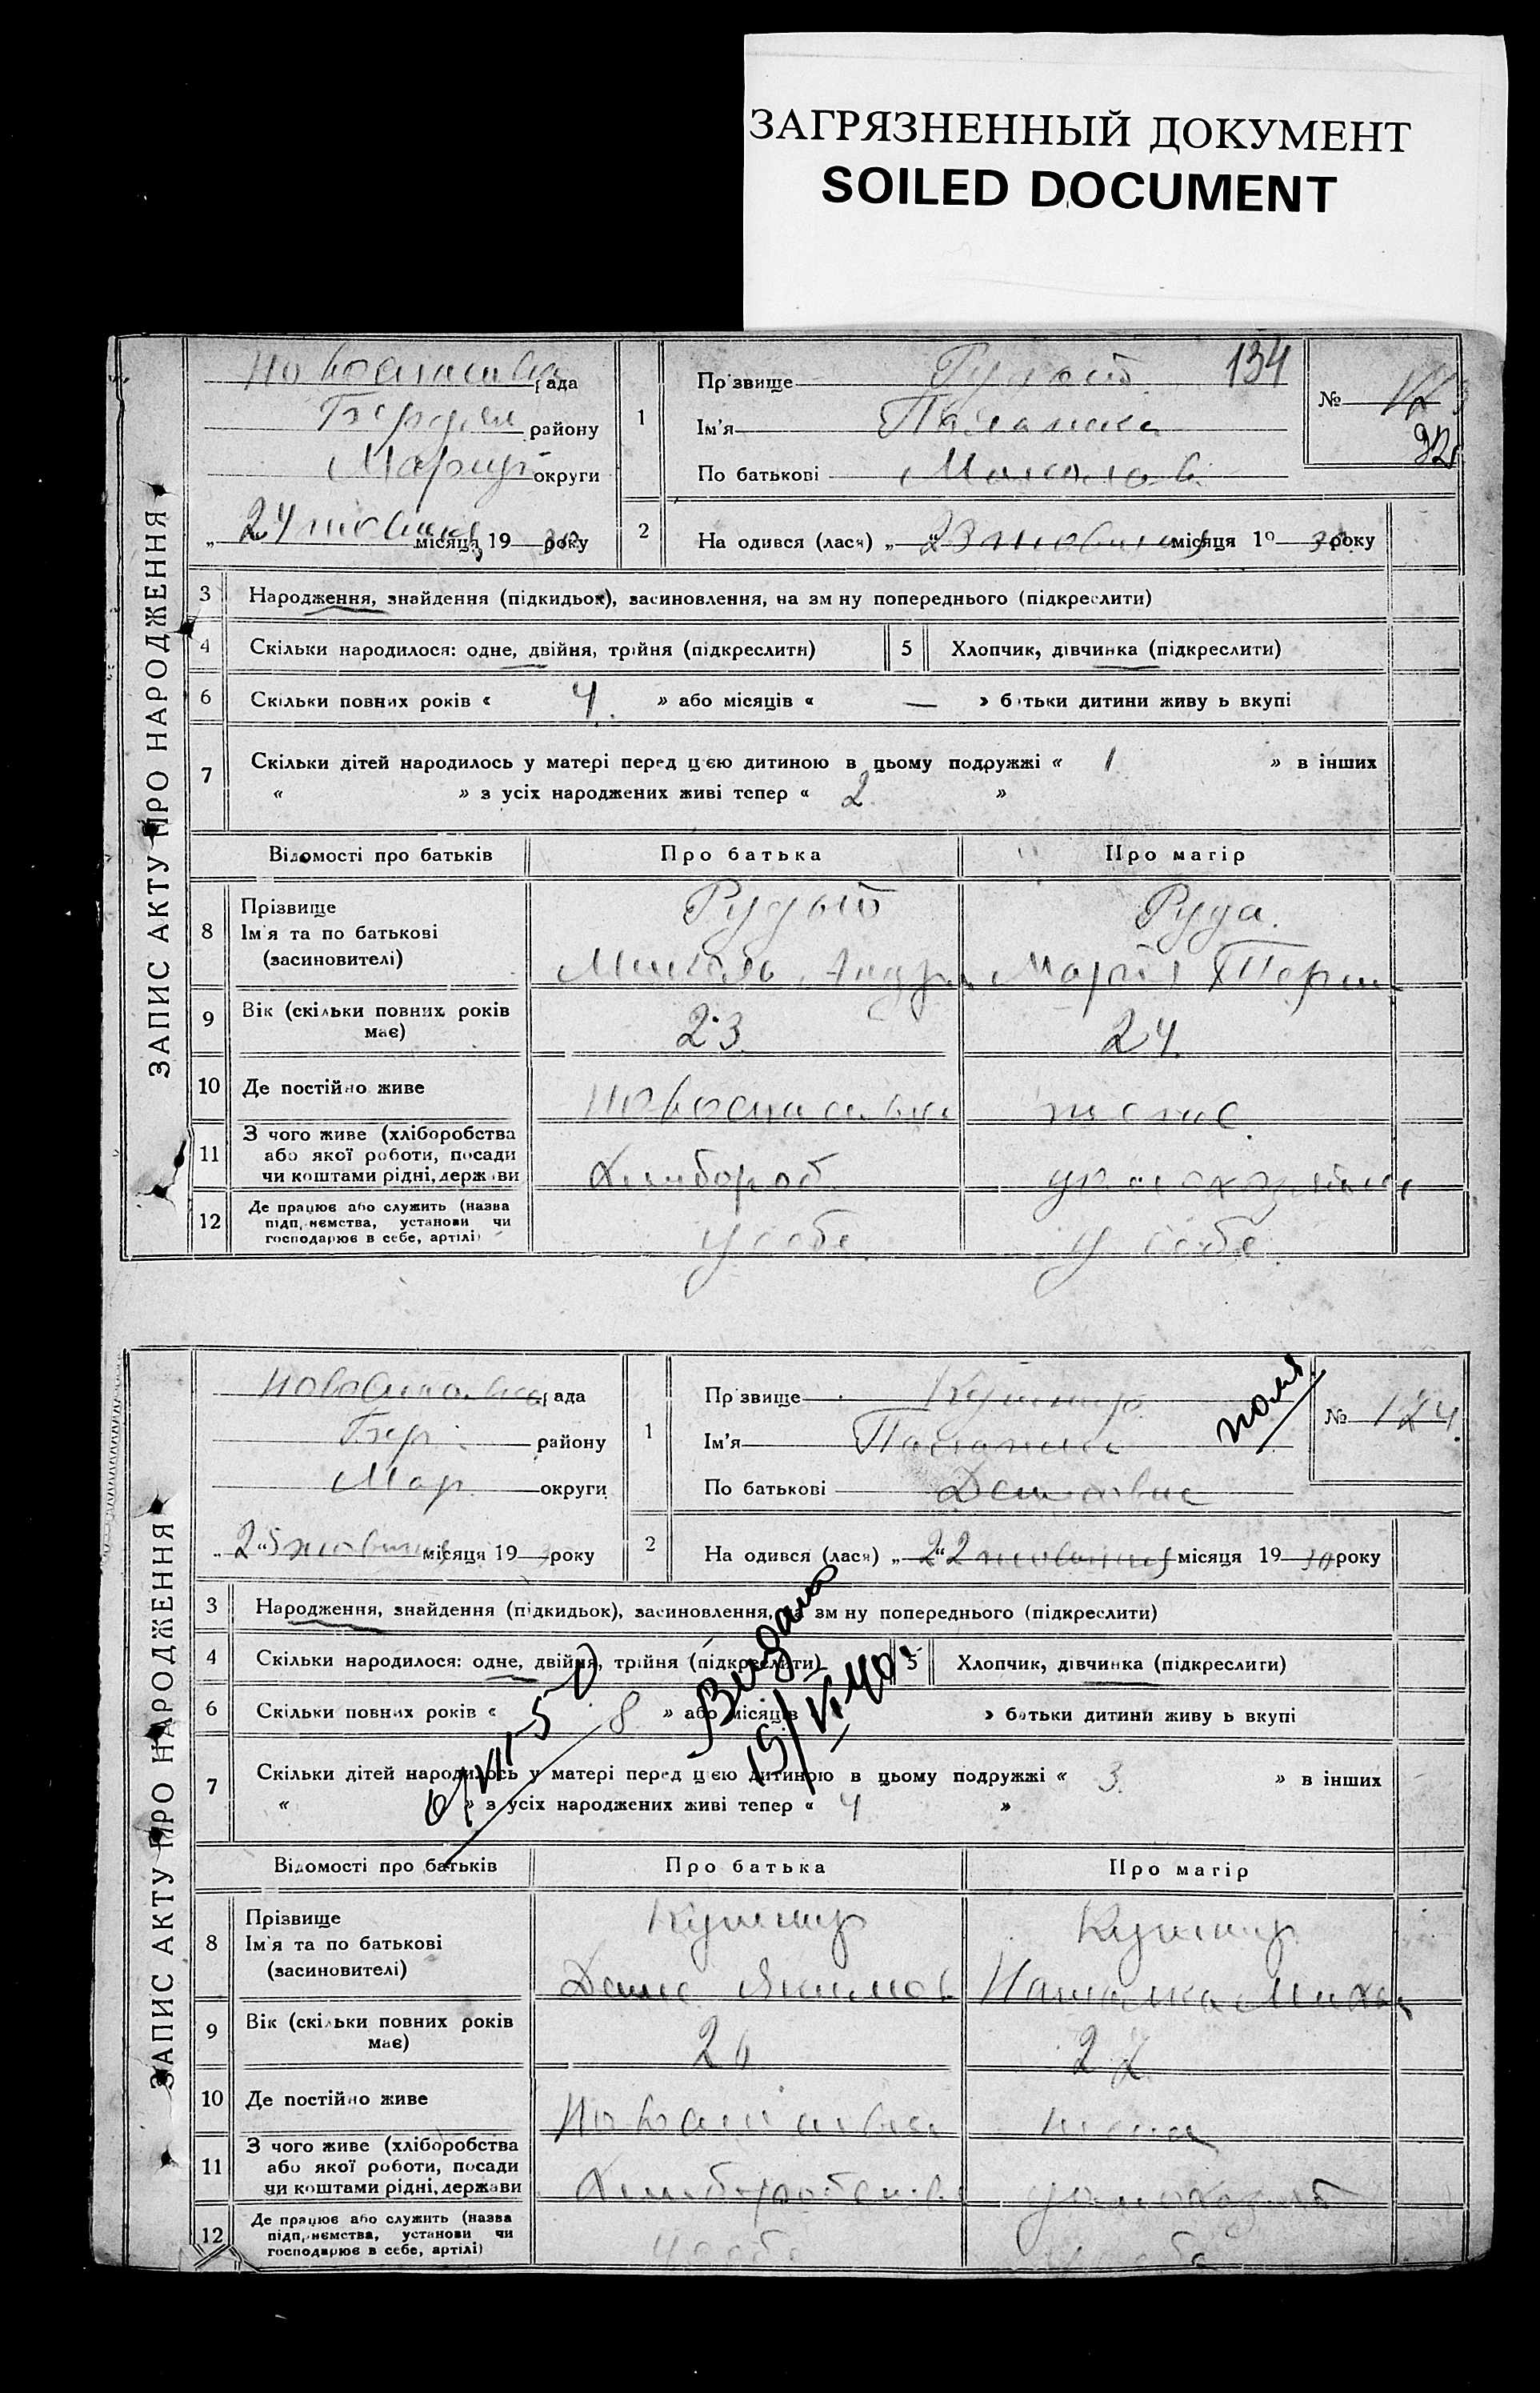 ЗАГРЯЗНЕННЫЙ ДОКУМЕНТ
SOILED DOCUMENT
ЗАПИС АКТУ ПРО НАРОДЖЕННЯ
Новоспасівка рада
район
Мариуп округи
„ 24 жовтня місяця 19 30 року
134
1
Прізвище Рудый
Ім'я Палажка
По батькові
№ 123
2
На одився (лася) „ 23 жовтня місяця 19 30 року
3
Народження, знайдення (підкидьок), засиновлення, на зм ну попереднього (підкреслити)
4
Скільки народилося: одне, двійня, трійня (підкреслити)
5
Хлопчик, дівчинка (підкреслити)
6
Скільки повних років « 4 » або місяців « — » батьки дитини живу ь вкупі
7
Скільки дітей народилось у матері перед цією дитиною в цьому подружжі « 1 » в інших
« » з усіх народжених живі тепер « 2 »
Відомості про батьків
Про батька
Про матір
8
Прізвище
Ім'я та по батькові
(засиновителі)
Рудый
Руда.
Микола Андр
Марія
9
Вік (скільки повних років має)
23
24.
10
Де постійно живе
Новоспасівка
теж
11
З чого живе (хліборобства
або якої роботи, посади
чи коштами рідні, держави
Хлібороб
домохазяйка
12
Де працює або служить (назва
підприємства, установи чи
господарює в себе, артілі)
у себе.
у себе.
ЗАПИС АКТУ ПРО НАРОДЖЕННЯ
Новоспасівка рада
Бер. району
Мар. округи
„ 25 жовтня місяця 19 30 року
1
Прізвище Кушнир
Ім'я
По батькові Денисівна
№ 124.
2
На одився (лася) „ 22 жовтня місяця 19 30 року
3
Народження, знайдення (підкидьок), засиновлення, на зм ну попереднього (підкреслити)
4
Скільки народилося: одне, двійня, трійня (підкреслити)
5
Хлопчик, дівчинка (підкреслити)
6
Скільки повних років « 8 » або місяців » батьки дитини живу ь вкупі
Видано
7
Скільки дітей народилось у матері перед цією дитиною в цьому подружжі « 3 » в інших
« » з усіх народжених живі тепер « 4 »
Відомості про батьків
Про батька
Про матір
8
Прізвище
Ім'я та по батькові
(засиновителі)
Кушнир
Кушнир
Денис Якимов
Наталка Миха
9
Вік (скільки повних років має)
26
27
10
Де постійно живе
Новоспасівка
11
З чого живе (хліборобства
або якої роботи, посади
чи коштами рідні, держави
Хлібороб
12
Де працює або служить (назва
підприємства, установи чи
господарює в себе, артілі)
у себе
у себе